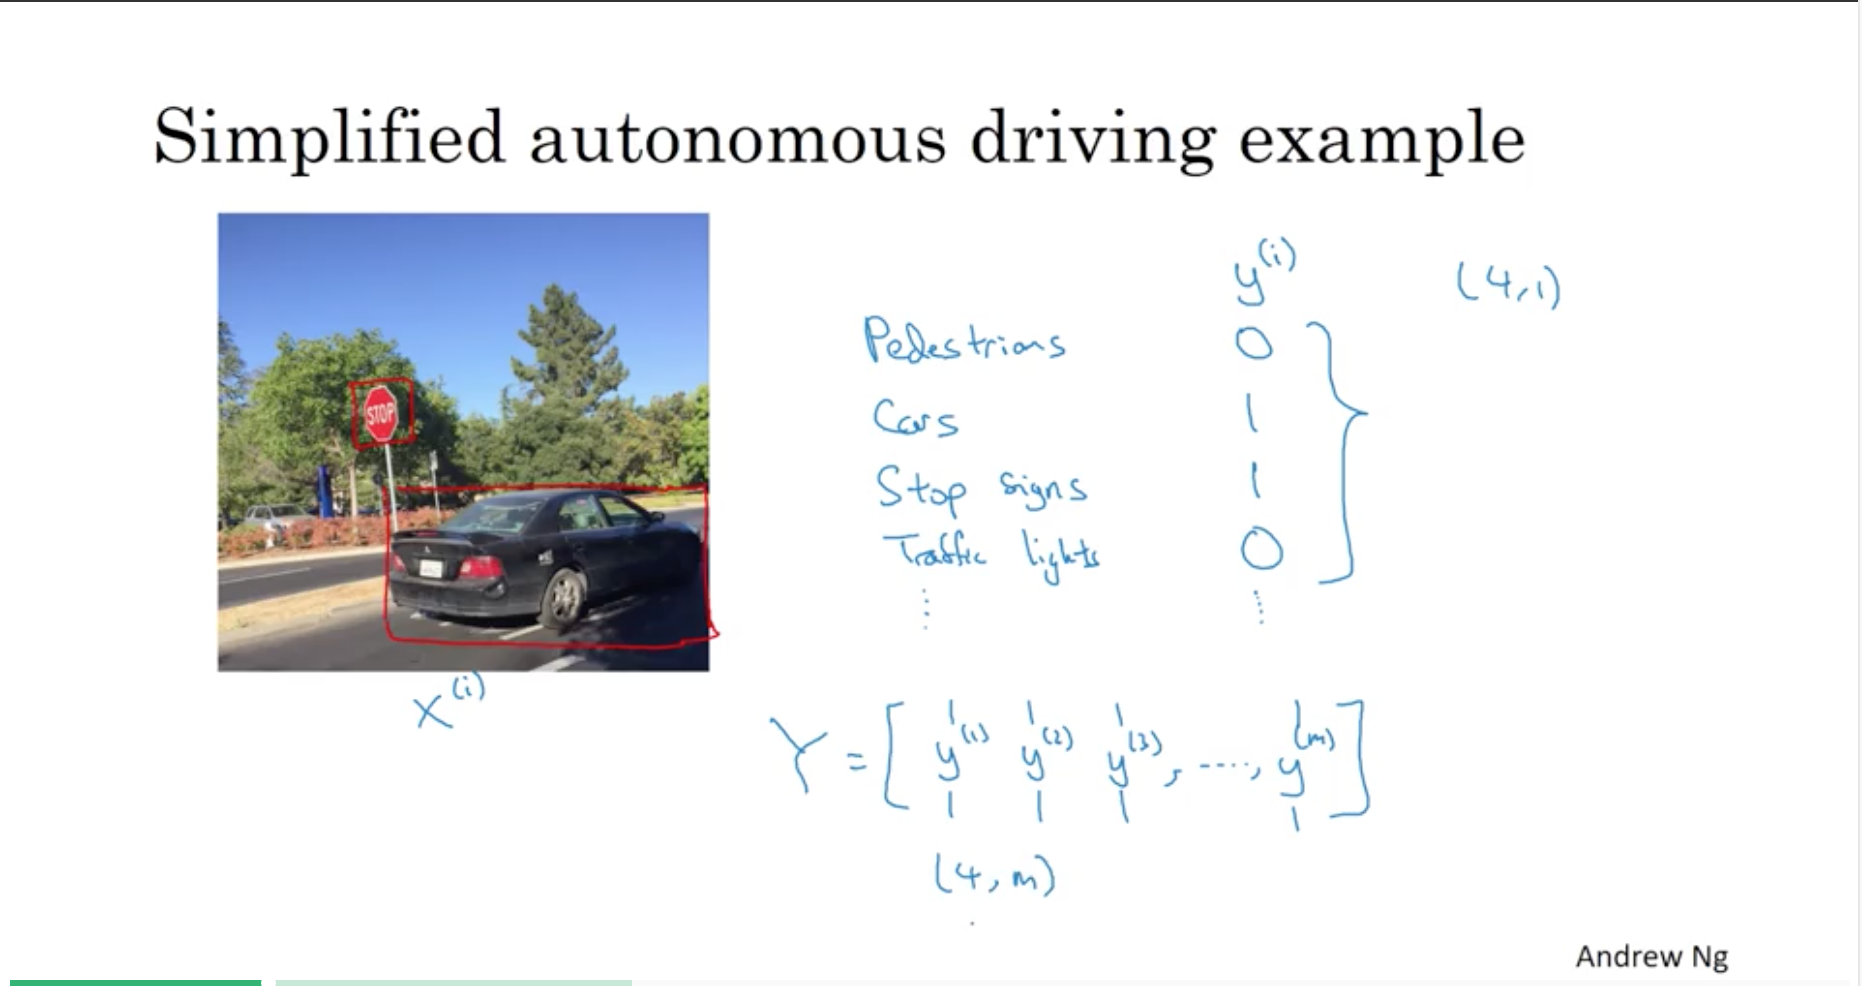 Simplified autonomous driving example
STOP
x^(i)
y^(i) (4,1)
Pedestrians 0
Cars 1
Stop signs 1
Traffic lights 0
⋮ ⋮
Y = [ y^(1) y^(2) y^(3), ----, y^(m) ]
(4, m)
Andrew Ng